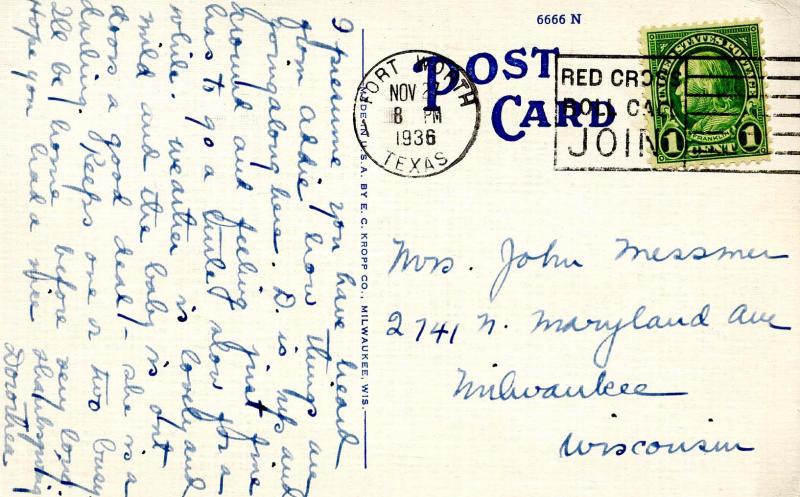 I presume you have heard
from Addie how things are
going along here. D. is up and
around and feeling just fine
has to go a little slow for a
while. weather is lovely and
mild and the baby is out
doors a good deal - she is a
darling. Keeps one or two busy
I'll be home before very long
Hope you had a nice Thanksgiving
Dorothea
MADE IN U.S.A. BY E. C. KROPP CO., MILWAUKEE, WIS.
6666 N
POST
CARD
FORT WORTH
NOV 2
8 PM
1936
TEXAS
RED CROSS
ROLL CA
JOIN
UNITED STATES POSTAGE
FRANKLIN
1 CENT 1
Mrs. John Messmer
2741 N. Maryland Ave
Milwaukee
Wisconsin